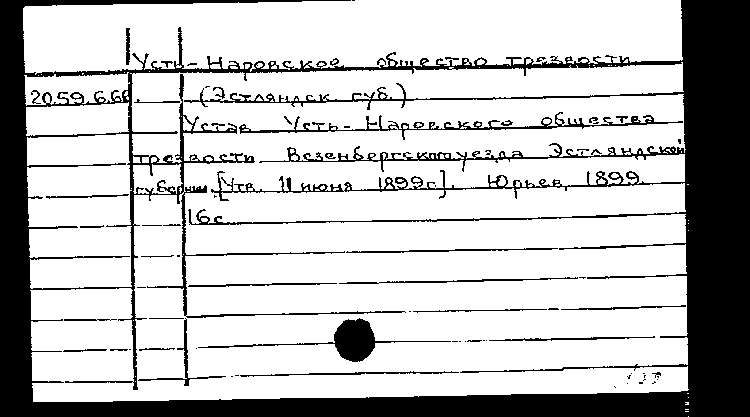 Усть-Наровское общество трезвости
20.59.6.66. (Эстляндск. губ.)
Устав Усть-Наровского общества
трезвости Везенбергского уезда Эстляндской
губернии. [Утв. 11 июня 1899 г.]. Юрьев, 1899.
16 с.